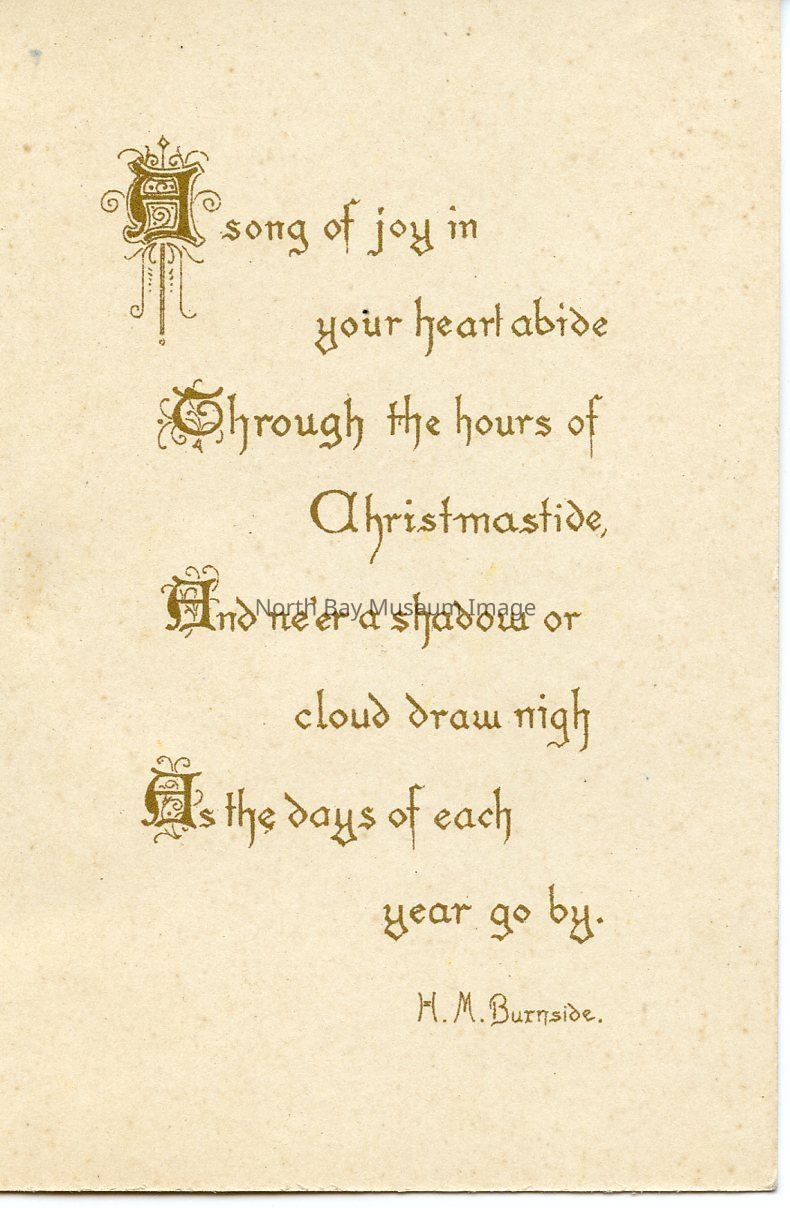 A song of joy in
your heart abide
Through the hours of
Christmastide,
And ne'er a shadow or
North Bay Museum Image
cloud draw nigh
As the days of each
year go by.
H. M. Burnside.